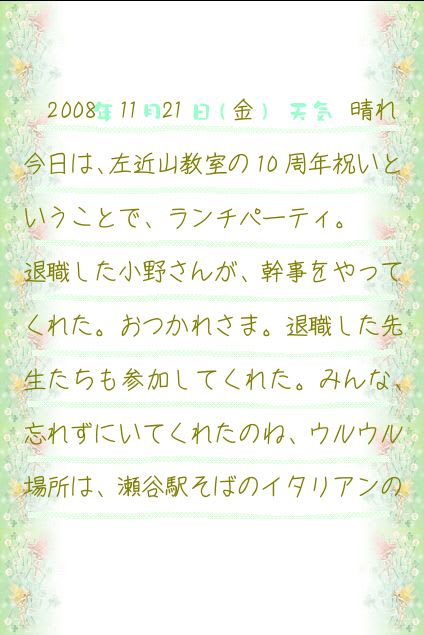 2008年 11月21日(金) 天気 晴れ
今日は、左近山教室の10周年祝いと
いうことで、ランチパーティ。
退職した小野さんが、幹事をやって
くれた。おつかれさま。退職した先
生たちも参加してくれた。みんな、
忘れずにいてくれたのね、ウルウル
場所は、瀬谷駅そばのイタリアンの